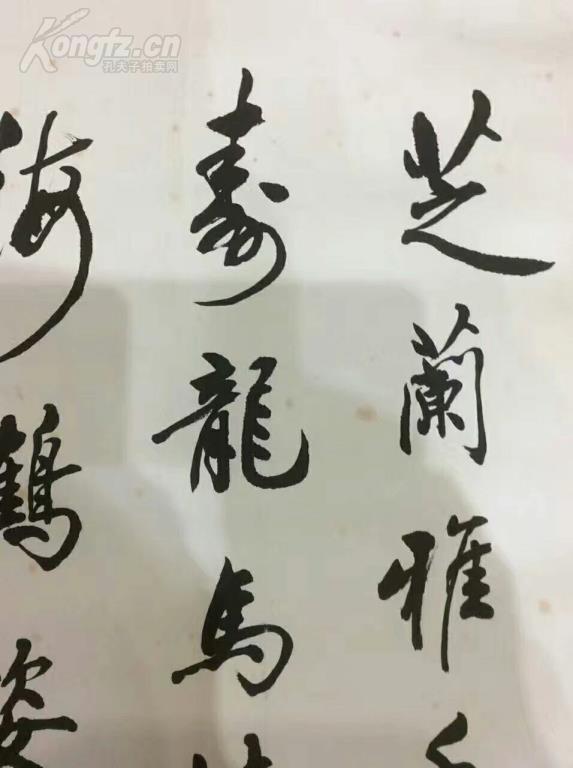 芝蘭雅
壽龍馬
海鶴姿
Kongfz.cn
孔夫子拍卖网